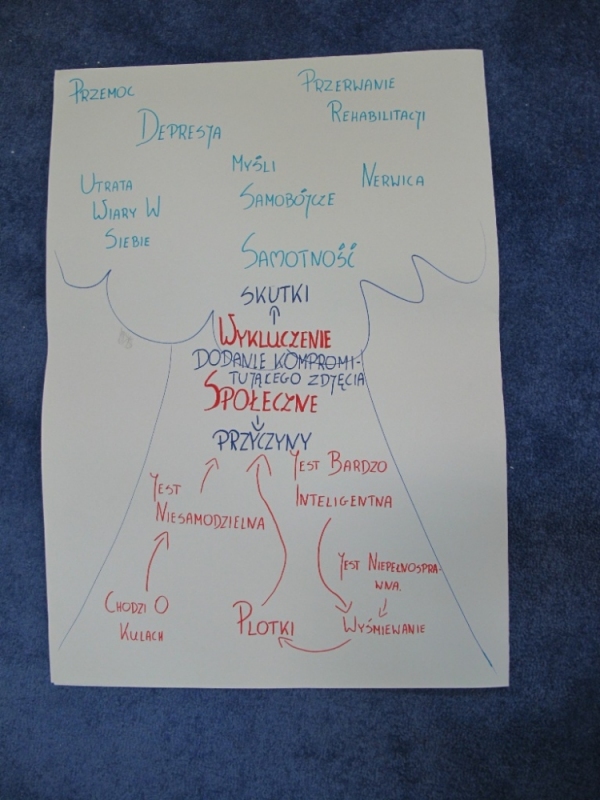 PRZEMOC
PRZERWANIE
REHABILITACJI
DEPRESJA
MYŚLI
SAMOBÓJCZE
NERWICA
UTRATA
WIARY W
SIEBIE
SAMOTNOŚĆ
SKUTKI
WYKLUCZENIE
DODANIE KOMPROMI-
TUJĄCEGO ZDJĘCIA
SPOŁECZNE
PRZYCZYNY
JEST BARDZO
INTELIGENTNA
JEST
NIESAMODZIELNA
JEST NIEPEŁNOSPRA-
WNA.
CHODZI O
KULACH
PLOTKI
WYŚMIEWANIE